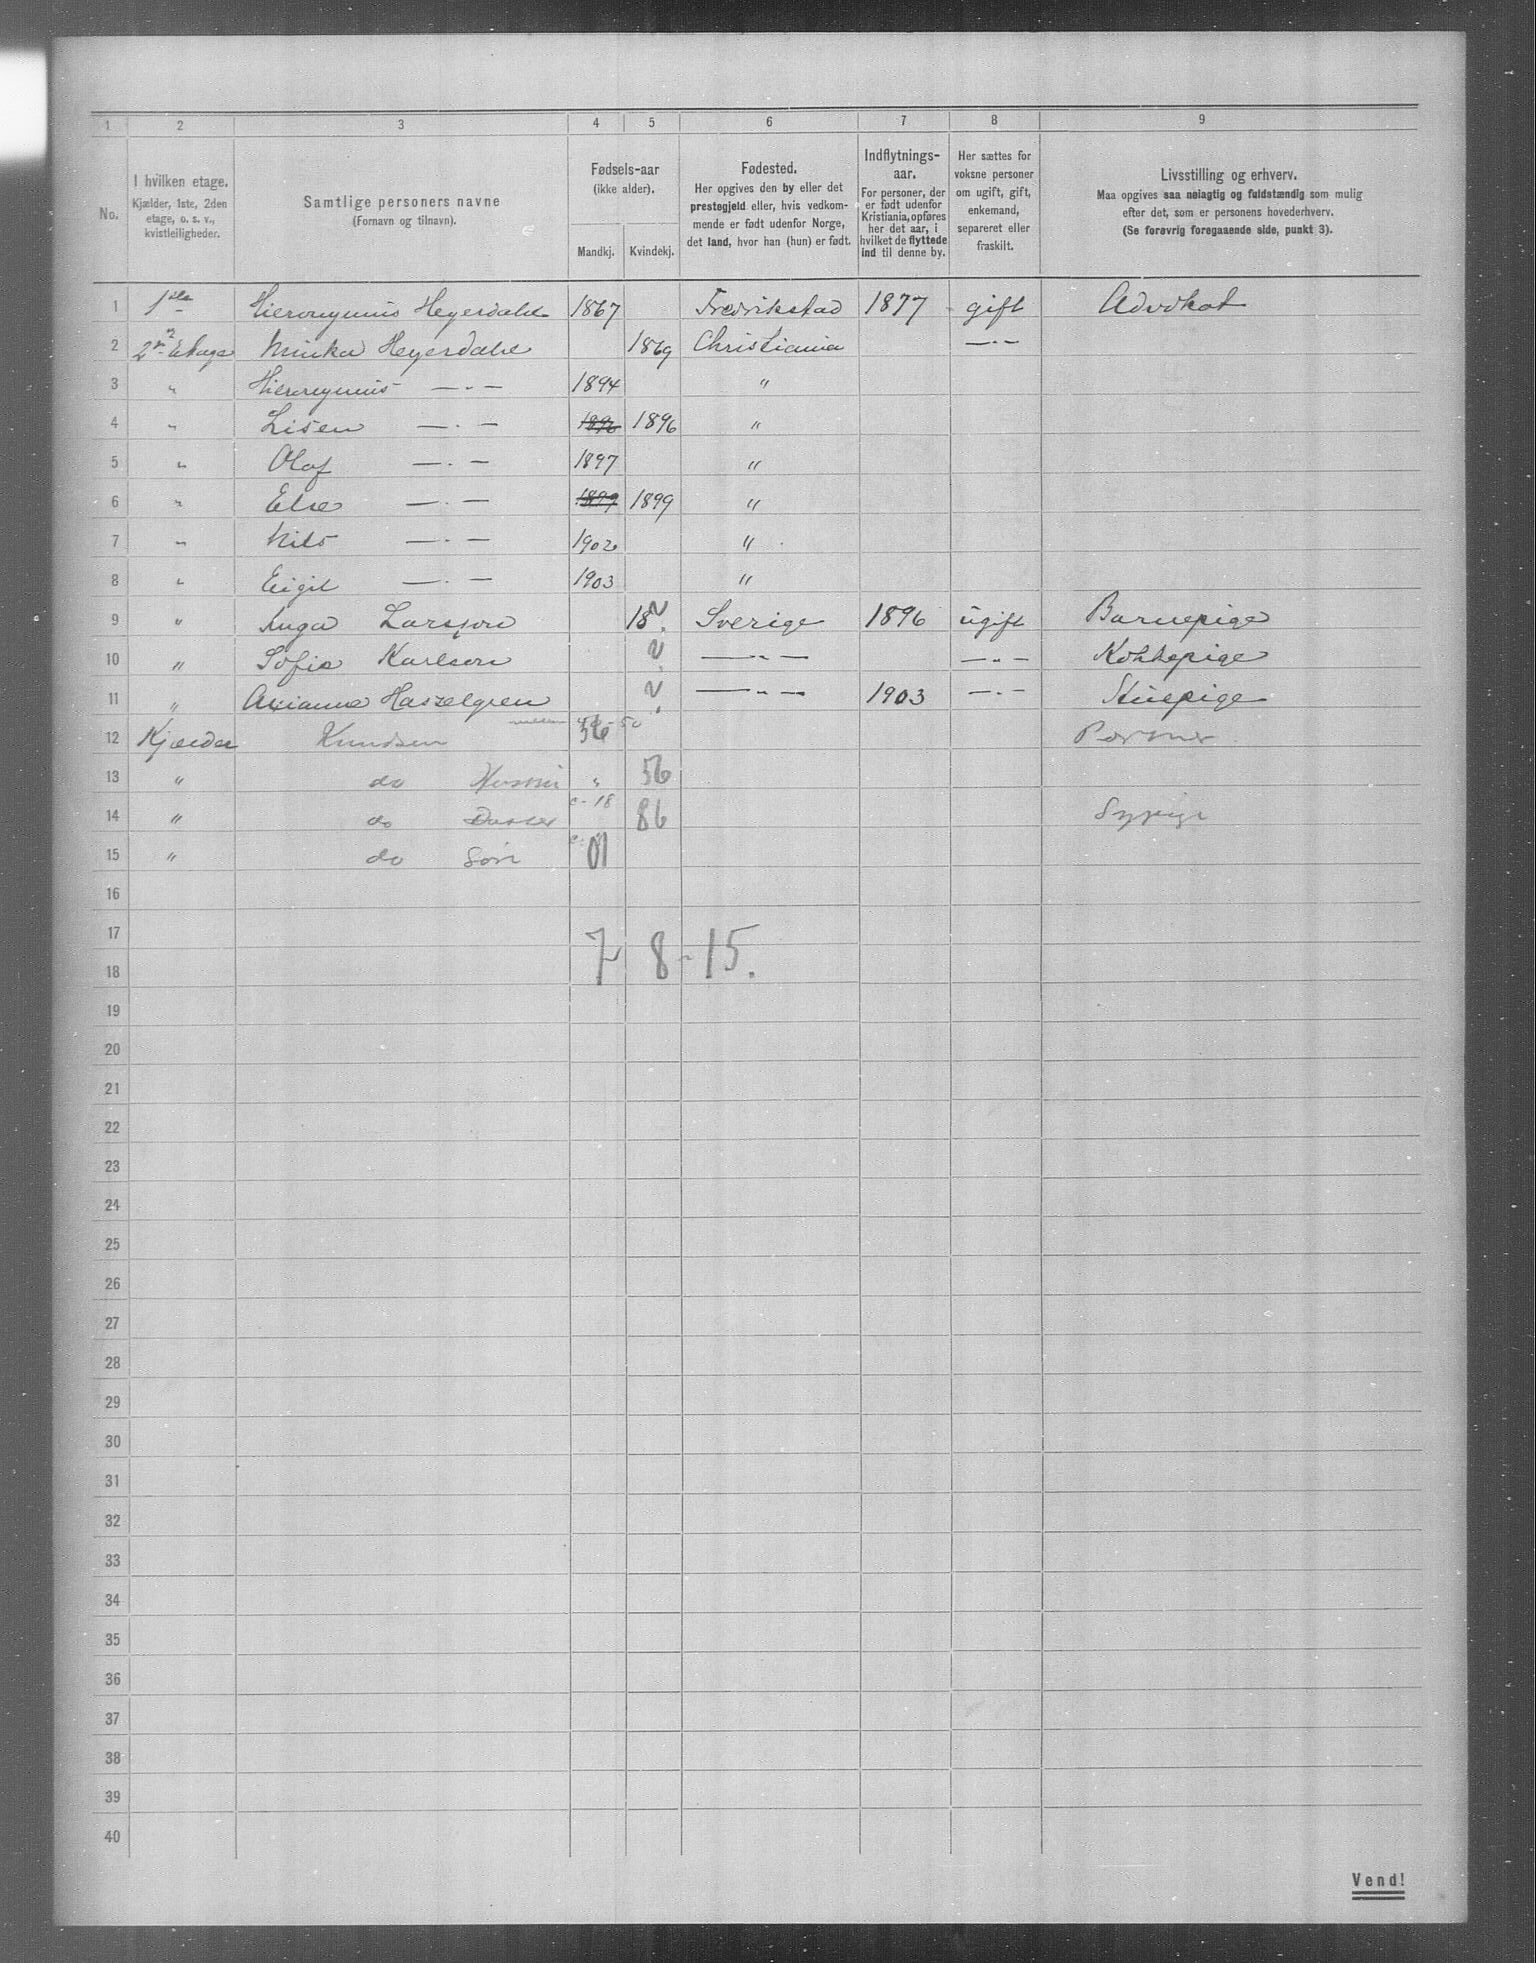 1 2 3 4 5 6 7 8 9
No.
I hvilken etage.
Kjælder, 1ste, 2den
etage, o. s. v.,
kvistleiligheder.
Samtlige personers navne
(Fornavn og tilnavn).
Fødsels-aar
(ikke alder).
Mandkj. Kvindekj.
Fødested.
Her opgives den by eller det
prestegjeld eller, hvis vedkom-
mende er født udenfor Norge,
det land, hvor han (hun) er født.
Indflytnings-
aar.
For personer, der
er født udenfor
Kristiania, opføres
her det aar, i
hvilket de flyttede
ind til denne by.
Her sættes for
voksne personer
om ugift, gift,
enkemand,
separeret eller
fraskilt.
Livsstilling og erhverv.
Maa opgives saa nøiagtig og fuldstændig som mulig
efter det, som er personens hovederhverv.
(Se forøvrig foregaaende side, punkt 3).
1 1ste Hieronymus Heyerdahl 1867 Fredrikstad 1877 gift Advokat
2 2n Etage Minka Heyerdahl 1869 Christiania —"—
3 " Hieronymus —"— 1894 "
4 " Lisen —"— 1896 1896 "
5 " Olaf —"— 1897 "
6 " Else —"— 1899 1899 "
7 " Nils —"— 1902 "
8 " Eigil —"— 1903 "
9 " Inga Larsson 18 ? Sverige 1896 ugift Barnepige
10 " Sofie Karlson ? —"— —"— Kokkepige
11 " Haszelgren ? —"— 1903 —"— Stuepige
12 Kjælder Knudsen mellem 50 56 Portner
13 " do Hustru " 56
14 " do Datter c. 18 86 Sypige
15 " do Søn 01
16
17
7 8 - 15.
18
19
20
21
22
23
24
25
26
27
28
29
30
31
32
33
34
35
36
37
38
39
40
Vend!